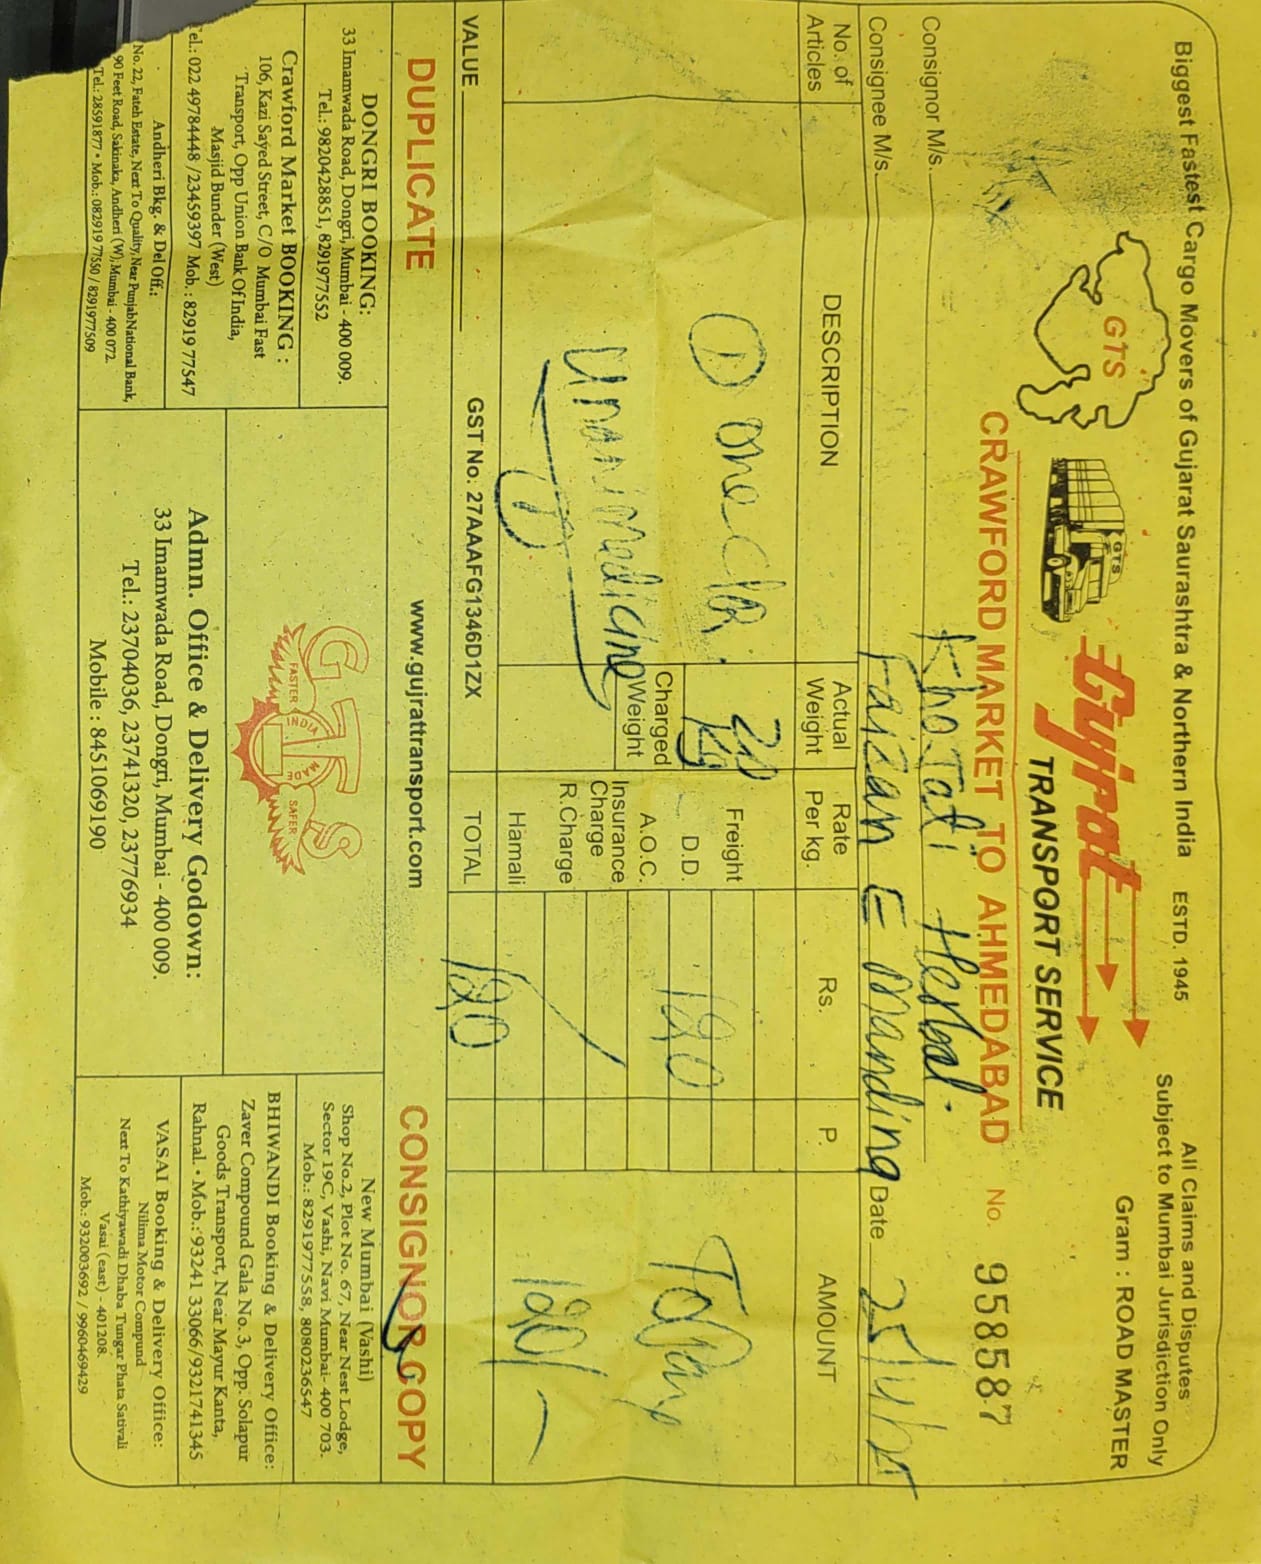 Biggest Fastest Cargo Movers of Gujarat Saurashtra & Northern India ESTD. 1945
All Claims and Disputes
Subject to Mumbai Jurisdiction Only
Gram : ROAD MASTER
GTS
GTS
Gujrat
TRANSPORT SERVICE
CRAWFORD MARKET TO AHMEDABAD No. 958587
Consignor M/s. Khojati Herbal
Consignee M/s. Faizan E Manding Date
No. of Articles
DESCRIPTION
Actual Weight
Rate Per kg.
Rs.
P.
AMOUNT
20 kg
Freight
D one
D.D.
Charged Weight
A.O.C. 120
Topay
Unani Medicine
Insurance Charge
R.Charge
Hamali
120/-
VALUE
GST No. 27AAAFG1346D1ZX
TOTAL 120
DUPLICATE
www.gujrattransport.com
CONSIGNOR COPY
DONGRI BOOKING:
33 Imamwada Road, Dongri, Mumbai - 400 009.
Tel.: 9820428851, 8291977552
Crawford Market BOOKING :
106, Kazi Sayed Street, C/O Mumbai Fast
Transport, Opp Union Bank Of India,
Masjid Bunder (West)
Tel.: 022 49784448 /23459397 Mob. : 82919 77547
Andheri Bkg. & Del Off.:
No. 22, Fateh Estate, Next To Quality, Near PunjabNational Bank,
90 Feet Road, Sakinaka, Andheri (W), Mumbai - 400 072.
Tel.: 28591877 • Mob.: 082919 77550 / 8291977509
GTS
FASTER
INDIA
MADE
SAFER
Admn. Office & Delivery Godown:
33 Imamwada Road, Dongri, Mumbai - 400 009.
Tel.: 23704036, 23741320, 23776934
Mobile : 8451069190
New Mumbai (Vashi)
Shop No.2, Plot No. 67, Near Nest Lodge,
Sector 19C, Vashi, Navi Mumbai- 400 703.
Mob.: 8291977558, 8080236547
BHIWANDI Booking & Delivery Office:
Zaver Compound Gala No. 3, Opp. Solapur
Goods Transport, Near Mayur Kanta,
Rahnal. • Mob.: 93241 33066/9321741345
VASAI Booking & Delivery Office:
Nilima Motor Compund
Next To Kathiyawadi Dhaba Tungar Phata Sativali
Vasai (east) - 401208.
Mob.: 932003692 / 9960469429